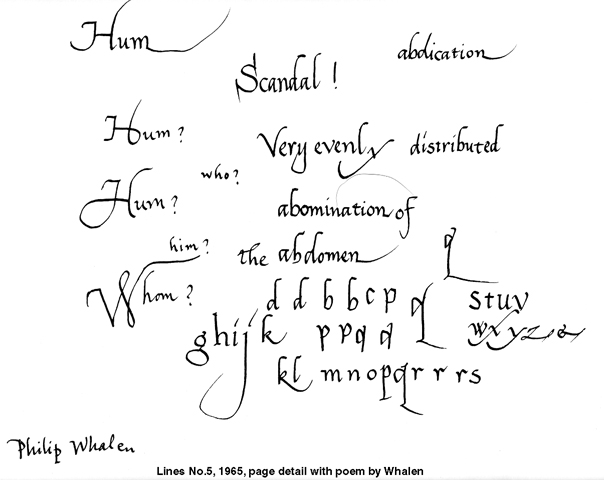 Hum
abdication
Scandal !
Hum ?
Very evenly distributed
who ?
Hum ?
abomination of
him ?
the abdomen
Whom ?
d d b b c p q
q
stuv
ghij k
p p q q
wxyz &
kl mnopqr r rs
Philip Whalen
Lines No.5, 1965, page detail with poem by Whalen